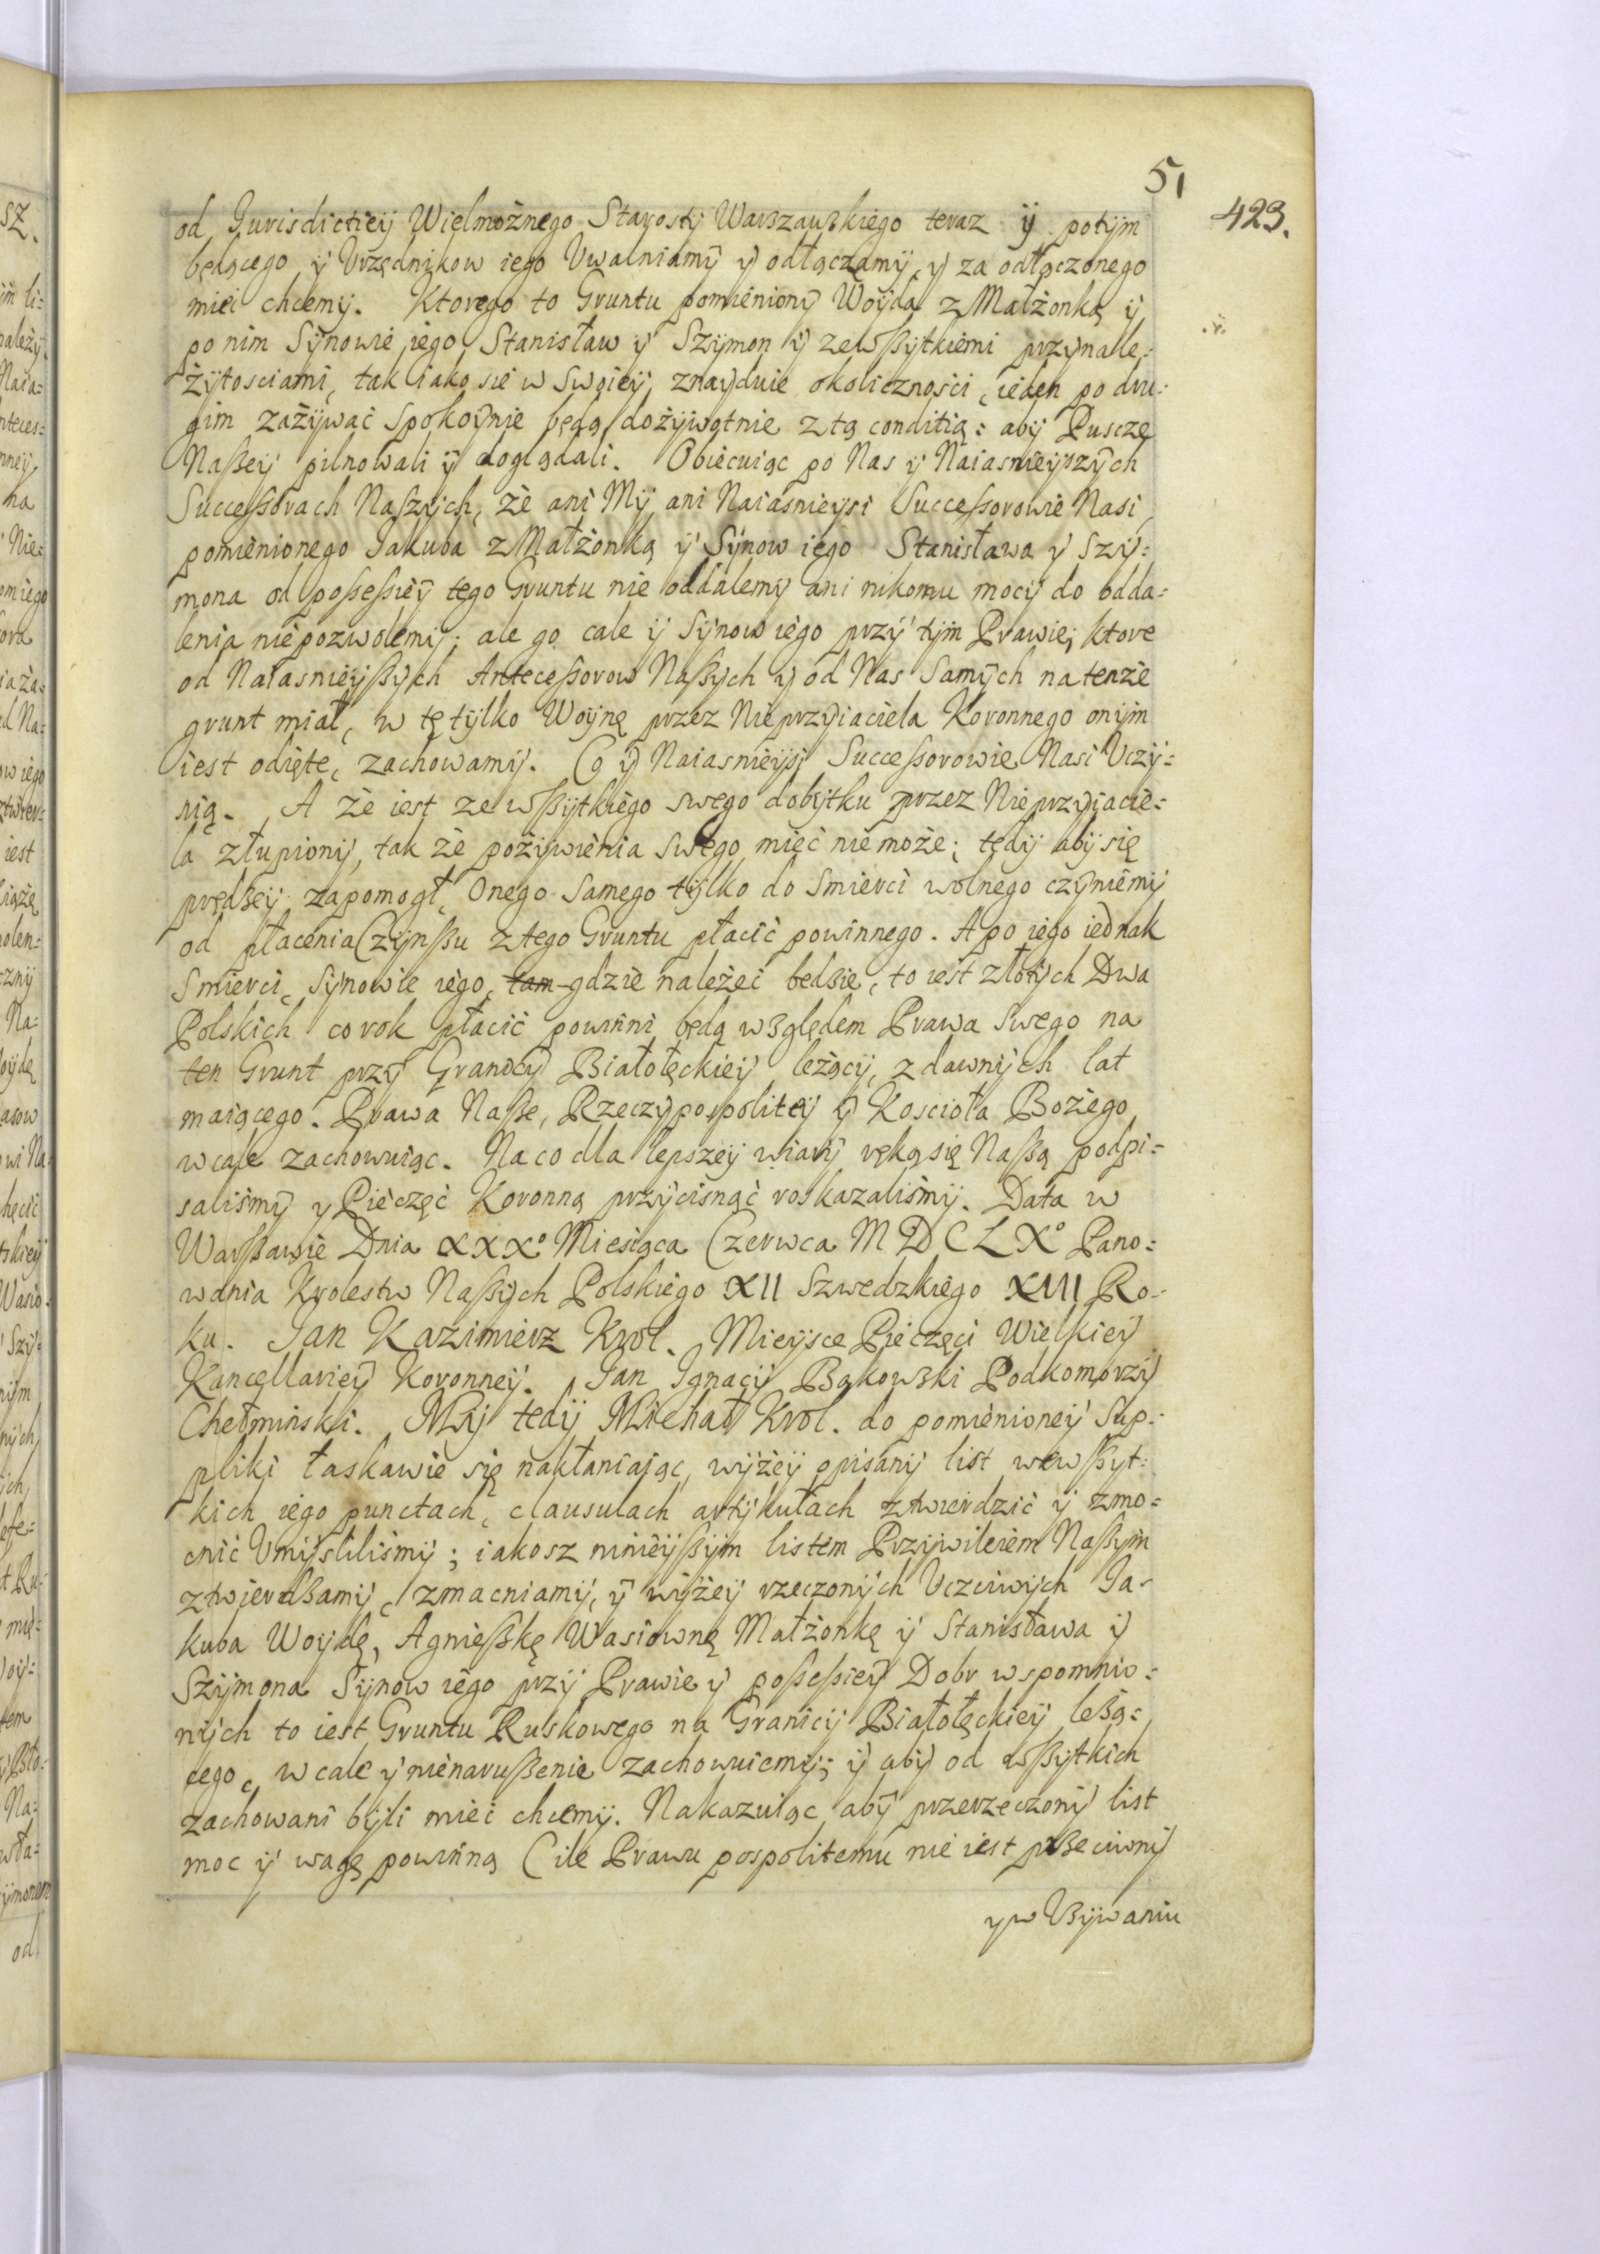 51
423.
od Jurisdictiey Wielmożnego Starosty Warszawskiego teraz y potym
będącego y Vrzędnikow iego Vwalniamy y odłączamy, y za odłączonego
mieć chcemy. Ktorego to Gruntu pomieniony Woyda z Małżonką y
po nim Synowie iego, Stanisław y Szymon y zewßytkiemi przynale-
żytosciami, tak iako się w swoiey znayduie okoliczności, ieden po dru-
gim zażywać spokoynie będą dożywotnie z tą conditią: aby Pusczę
Naßey pilnowali y doglądali. Obiecuiąc po Nas y Naiasnieyszych
Successorach Naszych, że ani My ani Naiasnieysi Successorowie Nasi
pomienionego Jakuba z Małżonką y Synow iego Stanisława y Szy-
mona od possessiey tego Gruntu nie oddalemy ani nikomu mocy do odda-
lenia nie pozwolemy; ale go cale y Synow iego przy tym Prawie, ktore
od Naiasnieyßych Antecessorow Naßych y od Nas Samych na tenże
grunt miał, w tę tylko Woynę przez Nieprzyiaciela Koronnego onym
iest odięte, zachowamy. Co y Naiasnieysi Successorowie Nasi Vczy-
nią. A że iest ze wßytkiego swego dobytku przez Nieprzyiacie-
la złupiony, tak że pożywienia swego mieć nie może; tedy aby się
prędzey zapomogł, Onego samego tylko do smierci wolnego czyniemy
od płacenia Czynßu z tego Gruntu płacić powinnego. A po iego iednak
Smierci, Synowie iego, tam gdzie należeć będzie, to iest złotych Dwa
Polskich co rok płacić powinni będą względem Prawa swego na
ten Grunt przy Granicy Białołęckiey leżący, z dawnych lat
maiącego. Prawa Naße, Rzeczypospolitey y Kościoła Bożego
w cale zachowuiąc. Na co dla lepszey wiary ręką się Naßą podpi-
saliśmy y Pieczęć Koronną przycisnąć roskazaliśmy. Data w
Warßawie Dnia XXXº Miesiąca Czerwca MDCLXº Pano-
wania Krolestw Naßych Polskiego XII Szwedzkiego XIII Ro-
ku. Jan Kazimierz Krol. Mieysce Pieczęci Wielkiey
Kancellariey Koronney. Jan Ignacy Bąkowski Podkomorzy
Chełminski. My tedy Michał Krol. do pomienioney Sup-
pliki łaskawie się nakłaniaiąc, wyżey opisany list wewßyt-
kich iego punctach, clausulach artykułach ztwierdzić y zmo-
cnić Vmyśliliśmy; iakosz ninieyßym listem Przywileiem Naßym
ztwierdzamy, zmacniamy, y wyżey rzeczonych Vczciwych Ja-
kuba Woydę, Agnießkę Wasiownę Małżonkę y Stanisława y
Szymona Synow iego przy Prawie y possessiey Dobr wspomnio-
nych to iest Gruntu Ruskowego na Granicy Białołęckiey leżą-
cego, w cale y nienarußenie zachowuiemy; y aby od wßytkich
zachowani byli mieć chcemy. Nakazuiąc aby przerzeczony list
moc y wagę powinną (ile Prawu pospolitemu nie iest przeciwny
y w Vżywaniu